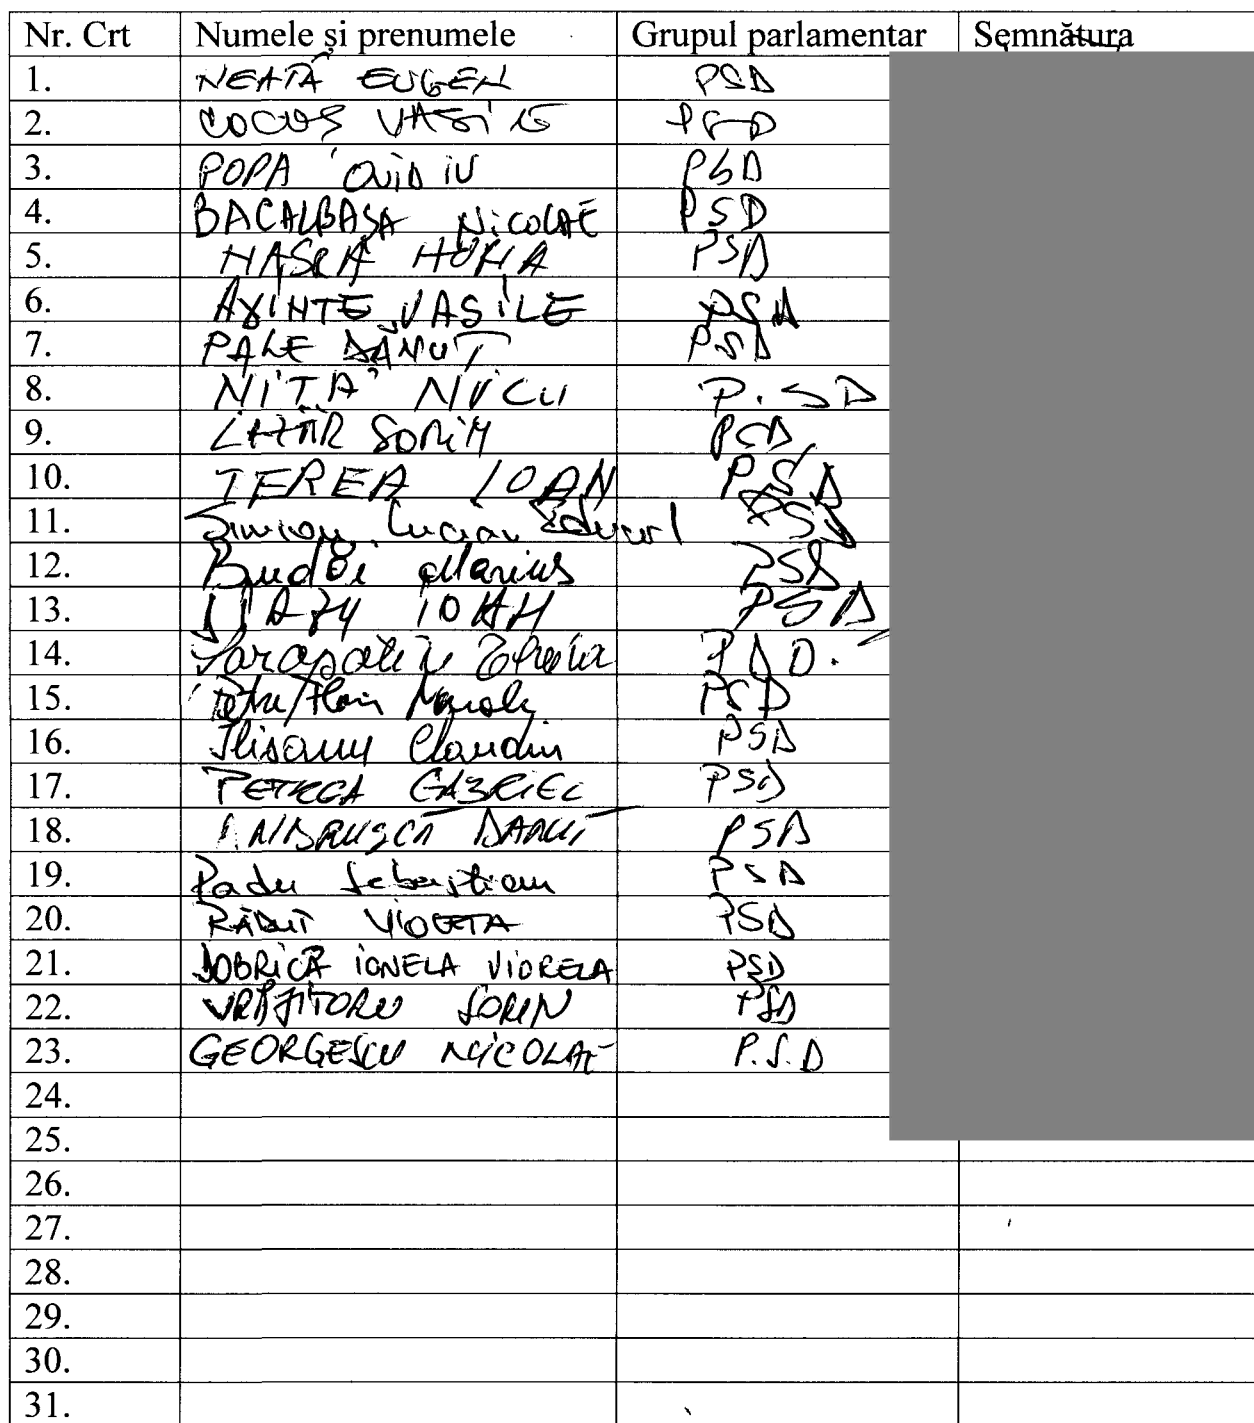 Nr. Crt Numele și prenumele Grupul parlamentar Semnătura
1. NEAȚĂ EUGEN PSD
2. COCOȘ VASILE PSD
3. POPA OVIDIU PSD
4. BACALBAȘA NICOLAE PSD
5. NASRA HORIA PSD
6. AXINTE VASILE PSD
7. PALE DĂNUȚ PSD
8. NIȚĂ NICU P.SD
9. LAZĂR SORIN PSD
10. TEREA IOAN PSD
11. Simion Lucian Eduard PSD
12. Budăi Marius PSD
13. IOAN PSD
14. PSD.
15. Petru Florin PSD
16. Ilișanu Claudiu PSD
17. PETREA GABRIEL PSD
18. ANDRUȘCĂ DĂNUȚ PSD
19. Radu Sebastian PSD
20. RĂDUȚ VIOLETA PSD
21. DOBRICĂ IONELA VIORELA PSD
22. VRĂJITORU SORIN PSD
23. GEORGESCU NICOLAE P.S.D
24.
25.
26.
27.
28.
29.
30.
31.